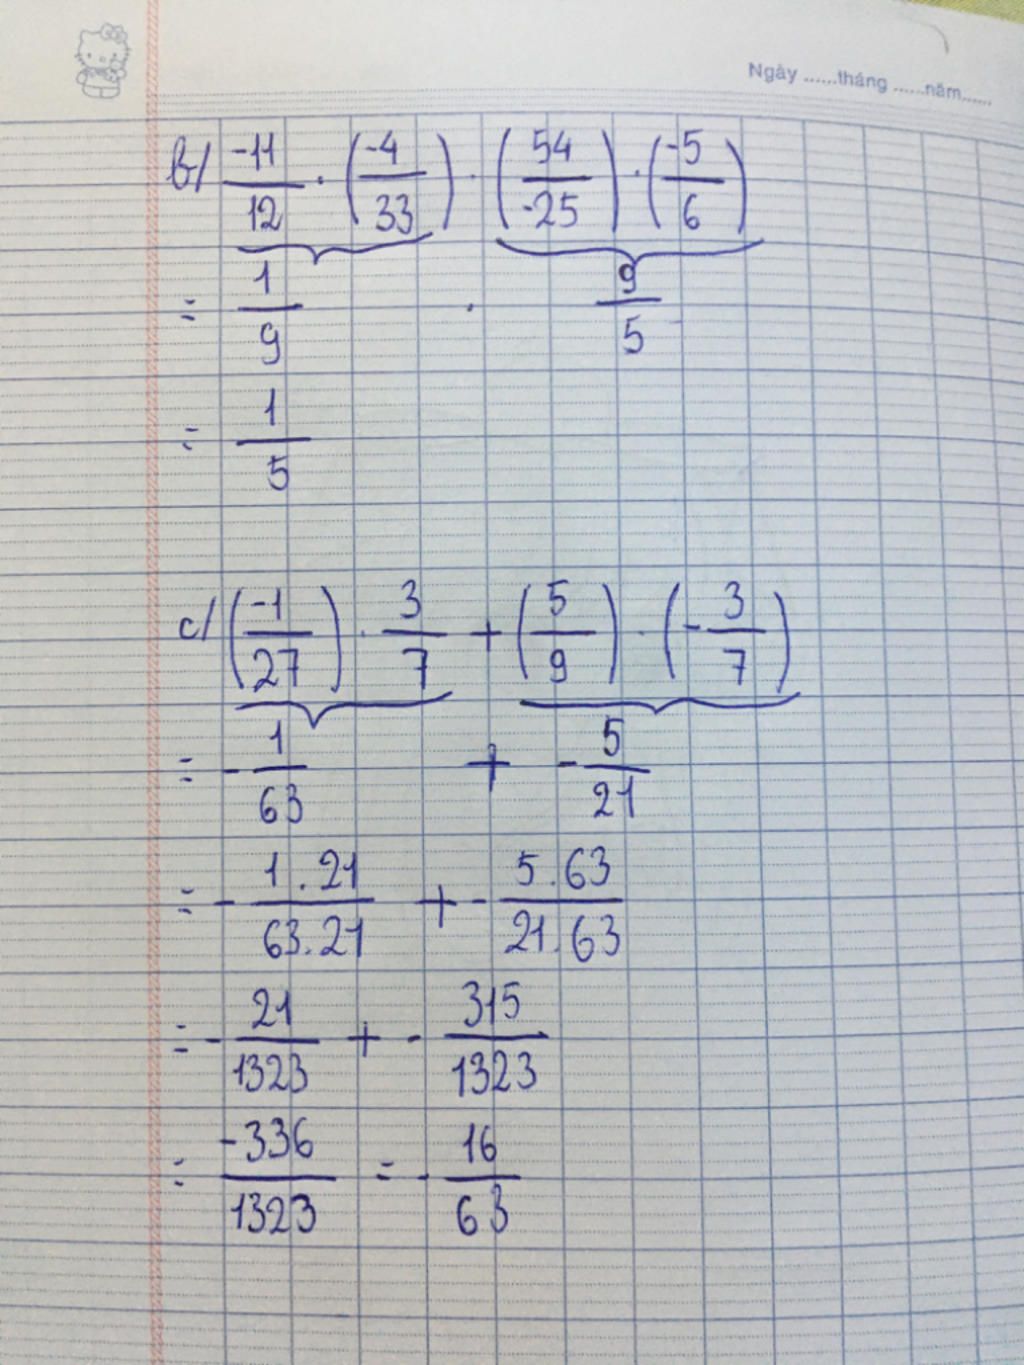 Ngày ......tháng ......năm......
b/ -11/12 . (-4/33) . (54/-25) . (-5/6)
= 1/9 . 9/5
= 1/5
c/ (-1/27) . 3/7 + (5/9) . (-3/7)
= -1/63 + -5/21
= -1.21/63.21 + -5.63/21.63
= -21/1323 + -315/1323
= -336/1323 = -16/63